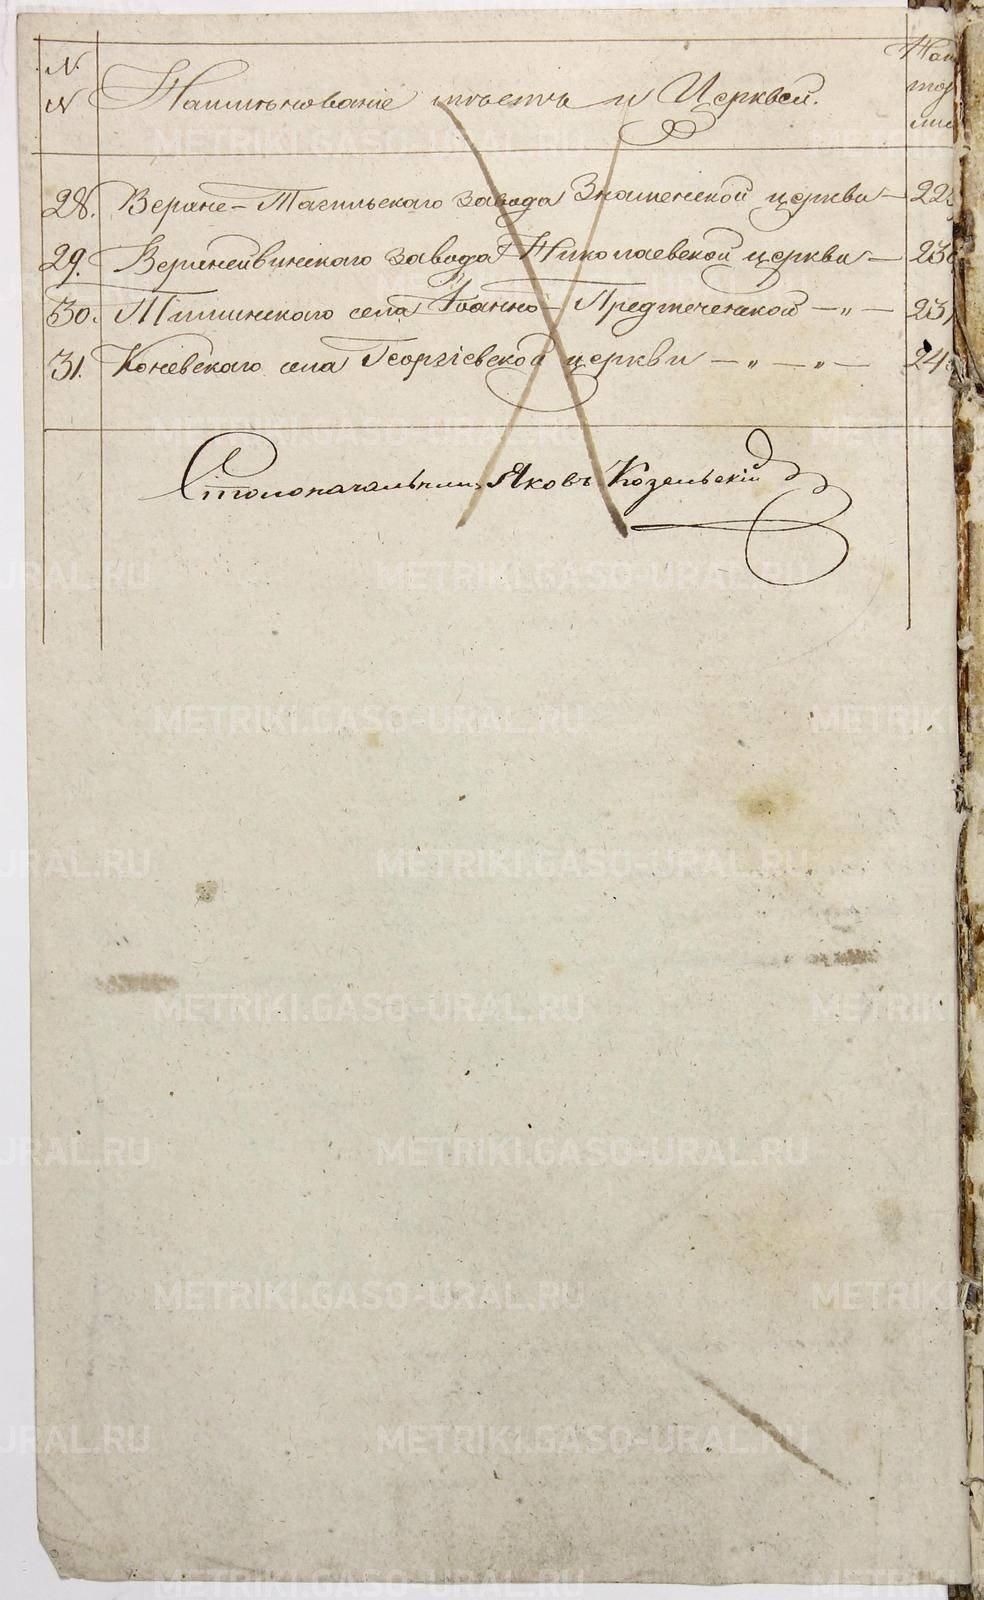 N
N
Наименованіе мѣстъ и Церквей.
На
28. Верхне-Тагильскаго завода Знаменской церкви — 22
29. Верхнейвинскаго завода Николаевской церкви — 23
30. села Іоанно-Предтеченской — „ — 23
31. Коневскаго села Георгіевской церкви — „ — „ — 24
Столоначальникъ Яковъ Козельскій
METRIKI.GASO-URAL.RU